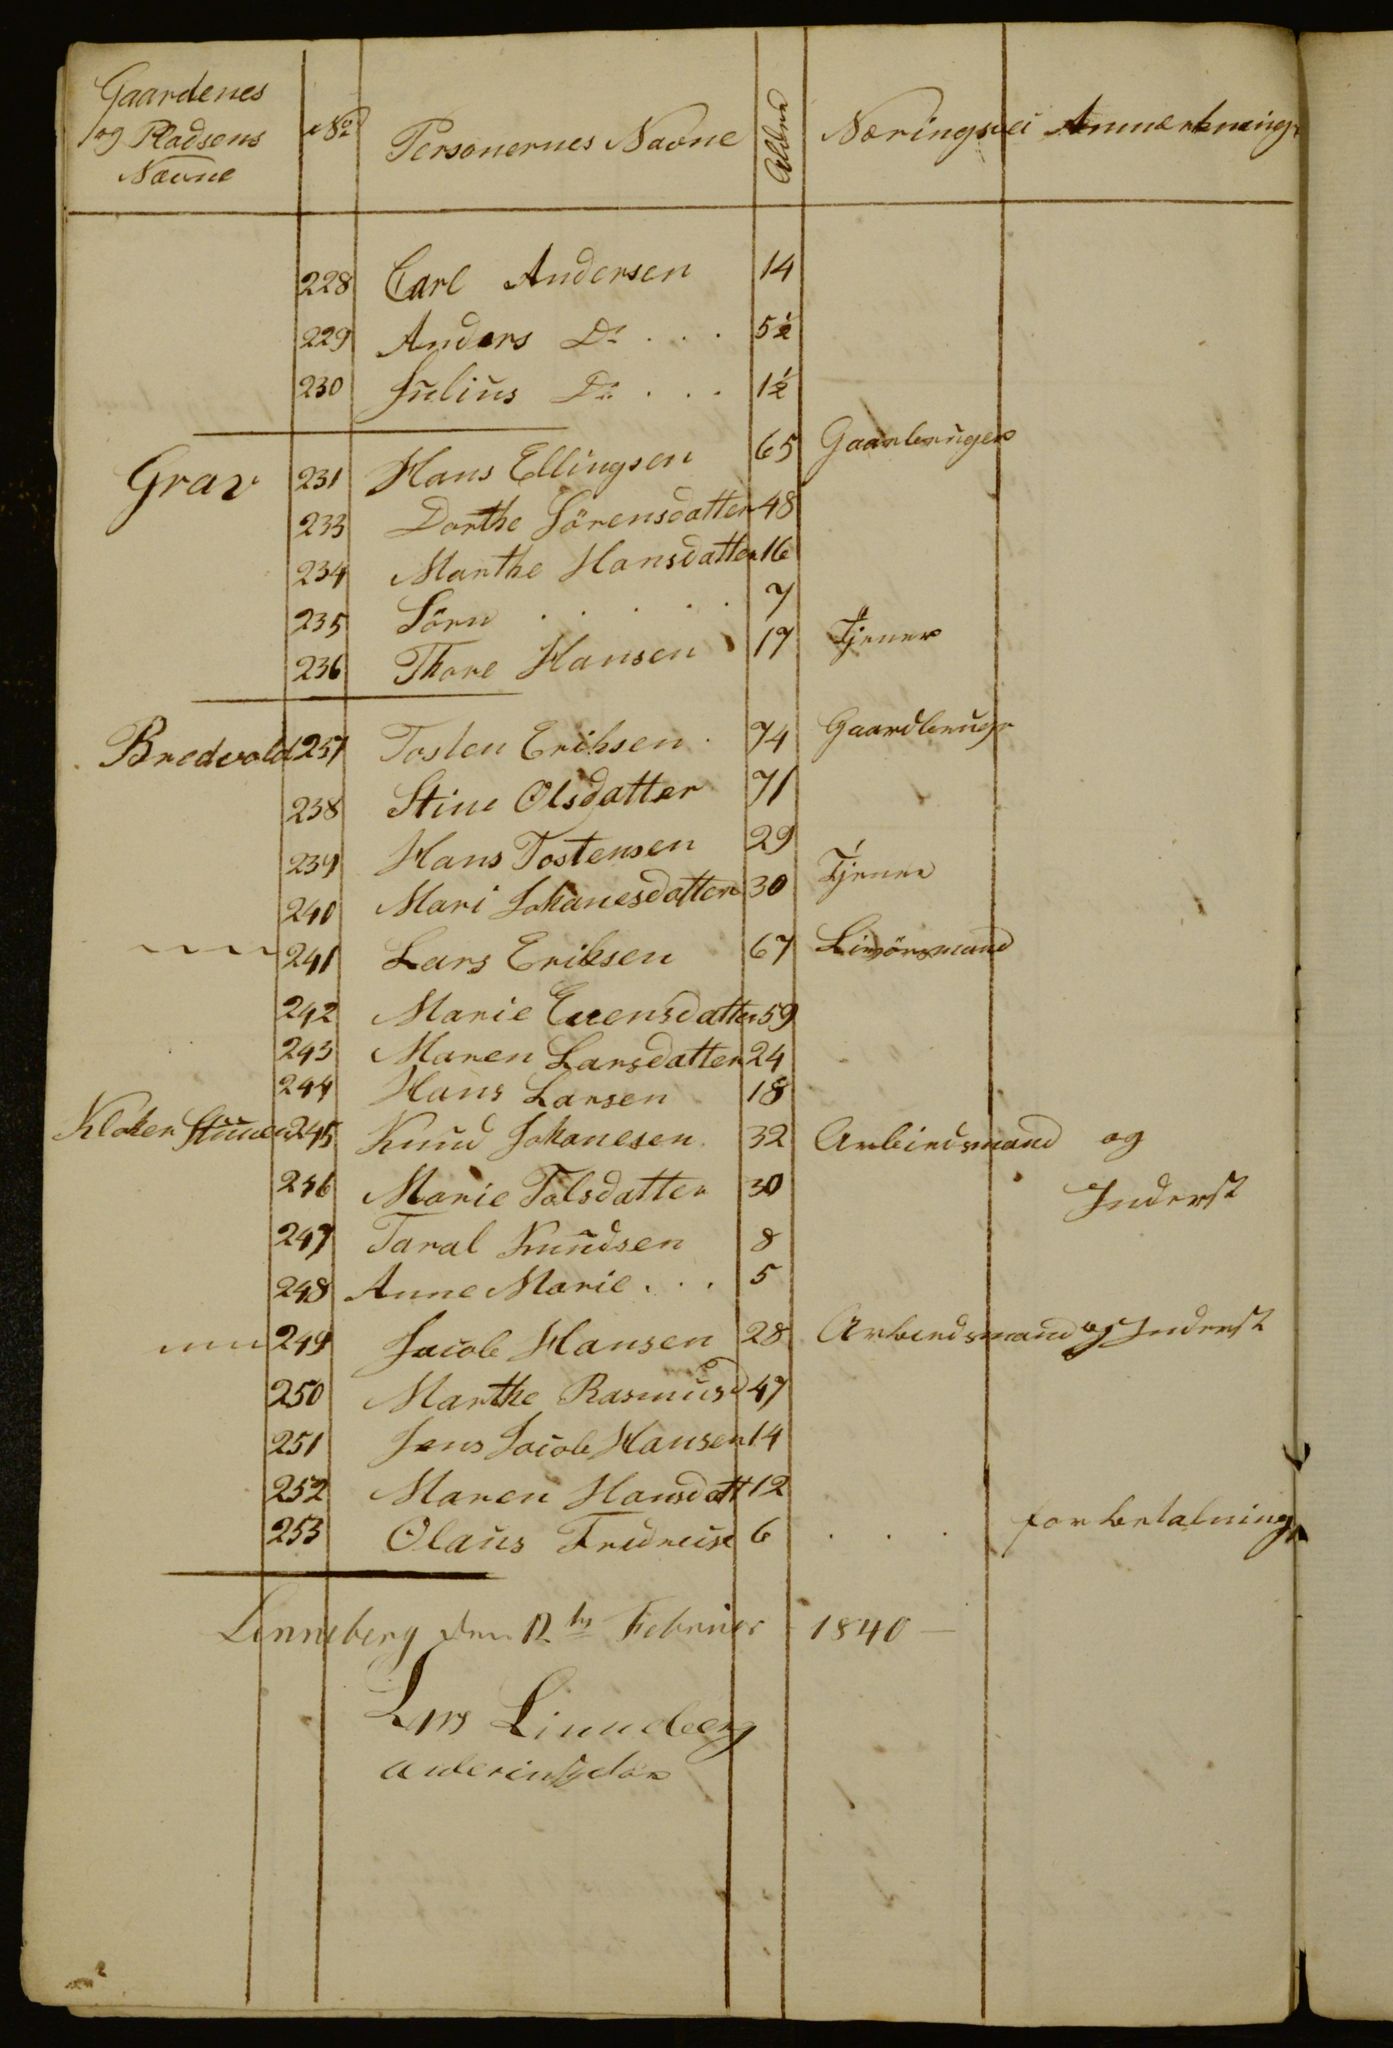 Gaardenes og Pladsens Navne | No | Personernes Navne | Alder | Næringsvei | Anmærkning
228 Carl Andersen 14
229 Anders Do . . . 5½
230 Julius Do . . . 1½
Grav 231 Hans Ellingsen 65 Gaarbruger
233 Dorthe Sörensdatter 48
234 Marthe Hansdatter 16
235 Sörn . . . . . 7
236 Thore Hansen 17 Tjener
Bredvold 237 Tosten Eriksen 74 Gaardbrugr
238 Stine Olsdatter 71
239 Hans Tostensen 29
240 Mari Johanesdatter 30 Tjener
241 Lars Eriksen 67
242 Marie Evensdatter 59
243 Maren Larsdatter 24
244 Hans Larsen 18
Kloker Stuuen 245 Knud Johanesen 32 Arbeidsmand og
246 Marie Tolsdatter 30 Inderst
247 Taral Knudsen 8
248 Anne Marie . . . 5
249 Jacob Hansen 28 Arbeidsmand og Inderst
250 Marthe Rasmusd 47
251 Jens Jacob Hansen 14
252 Maren Hansdatt 12
253 Olaus 6 . . . for betalning
Linneberg den 12te Februar 1840 —
Lars Linneberg